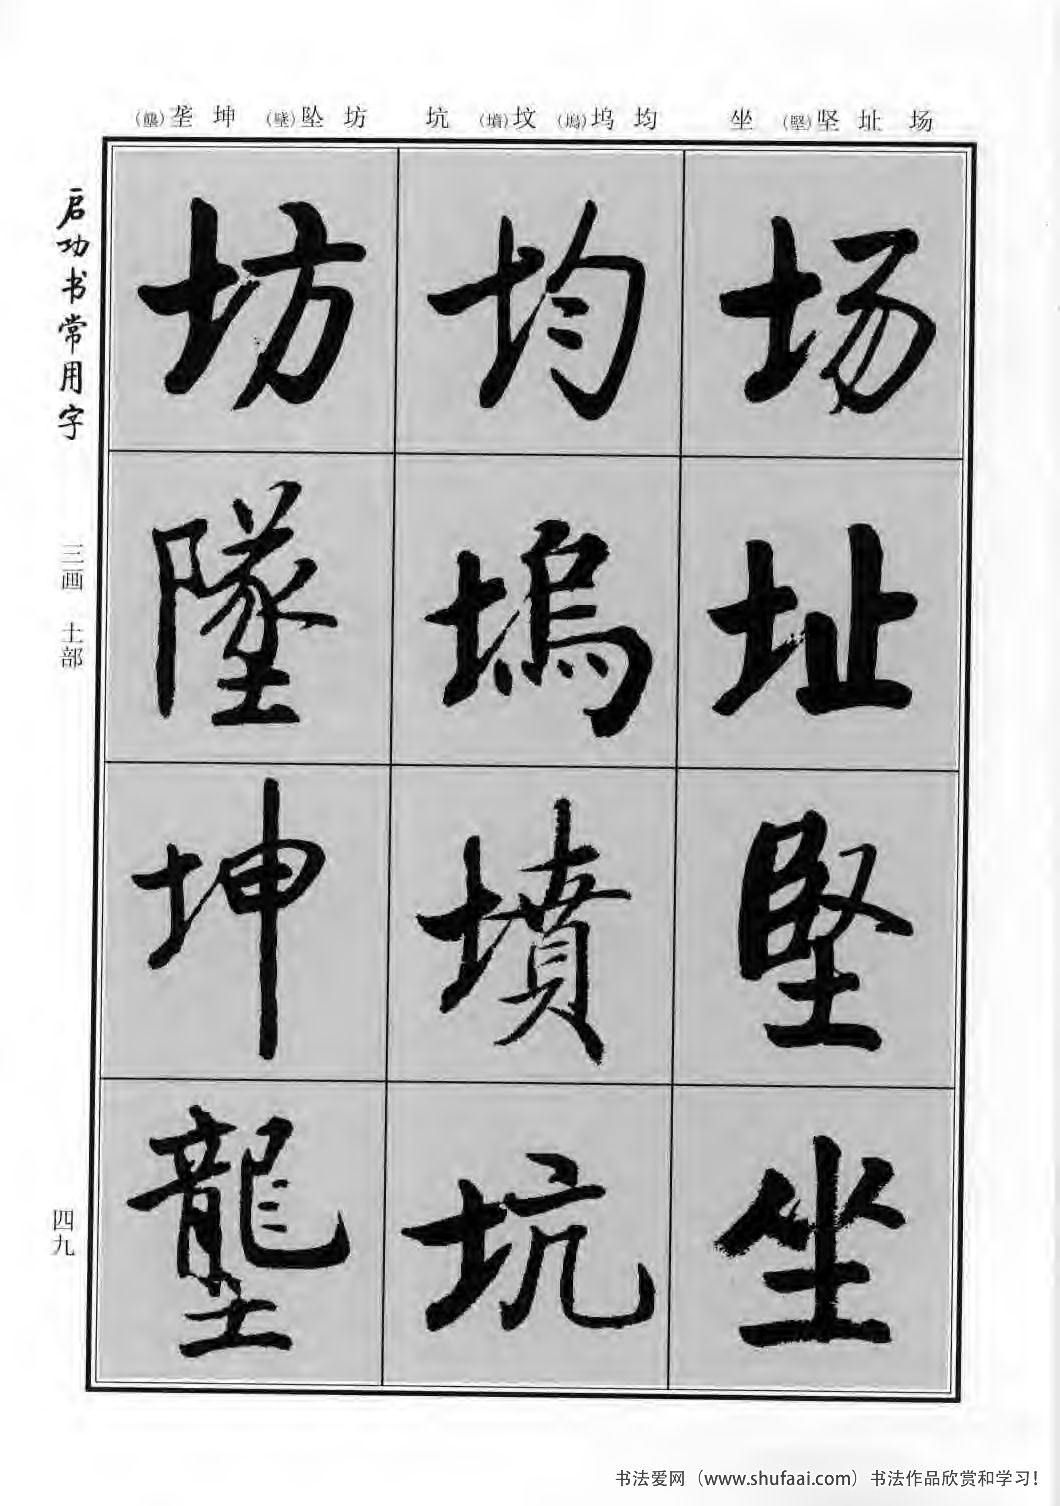 场 址 坚(堅) 坐
均 坞(塢) 坟(墳) 坑
坊 坠(墜) 坤 垄(壟)
场
址
堅
坐
均
塢
墳
坑
坊
墜
坤
壟
启功书常用字
三画 土部
四九
书法爱网（www.shufaai.com）书法作品欣赏和学习！